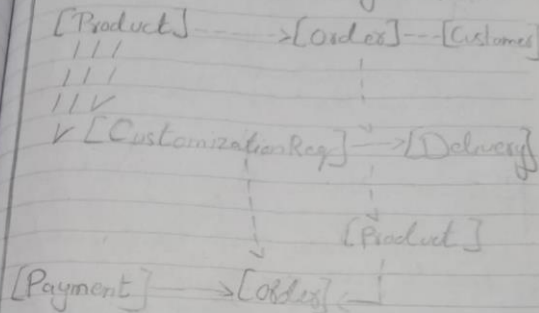 [Product] ------>[Order]---[Customer]
[CustomizationReq] -->[Delivery]
[Product]
[Payment] -->[Order]